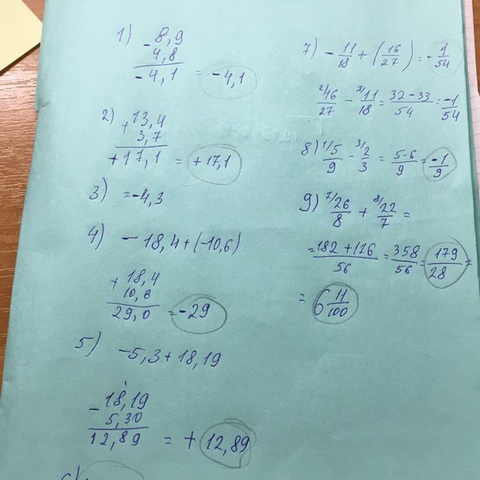 1) - 8,9
4,8
-4,1 = -4,1
2) + 13,4
3,7
+17,1 = +17,1
3) = -4,3
4) - 18,4 + (-10,6)
+ 18,4
10,6
29,0 = -29
5) -5,3 + 18,19
- 18,19
5,30
12,89 = + 12,89
7) - 11/18 + (16/27) = - 1/54
2/16/27 - 3/11/18 = 32-33/54 = -1/54
8) 1/5/9 - 3/2/3 = 5-6/9 = -1/9
9) 7/26/8 + 8/22/7 =
= 182+176/56 = 358/56 = 179/28 =
= 6 11/100